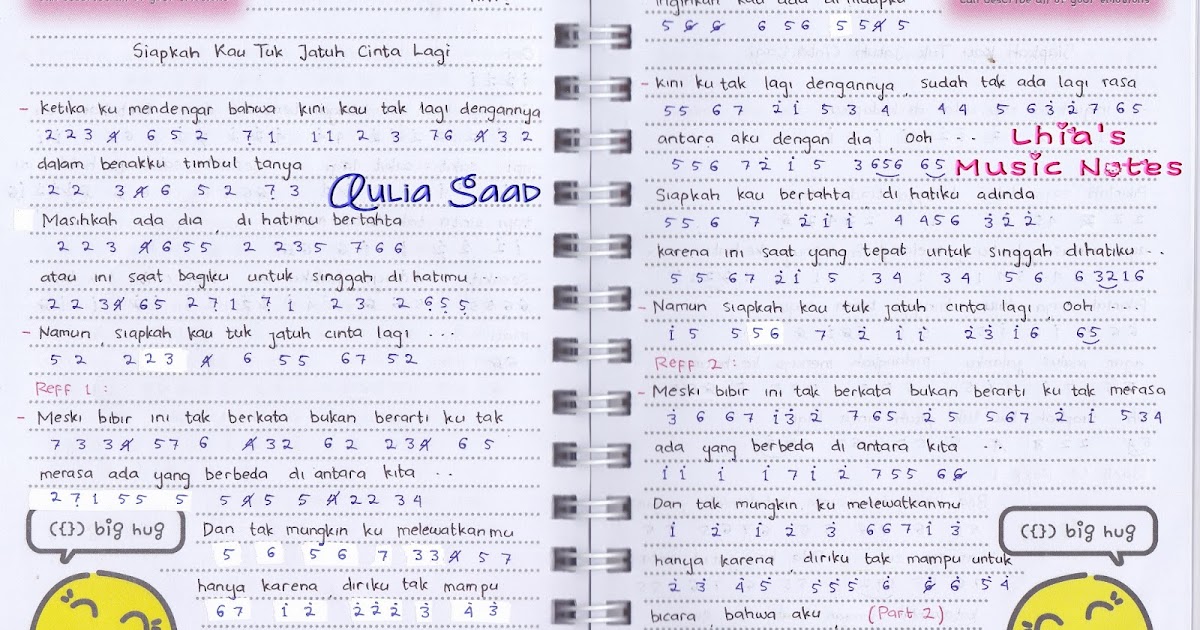 Siapkah Kau Tuk Jatuh Cinta Lagi
- ketika ku mendengar bahwa kini kau tak lagi dengannya
2 2 3 4 6 5 2 7 1 1 1 2 3 7 6 4 3 2
dalam benakku timbul tanya
2 2 3 4 6 5 2 7 3
Aulia Saad
Masihkah ada dia di hatimu bertahta
2 2 3 4 6 5 5 2 2 3 5 7 6 6
atau ini saat bagiku untuk singgah di hatimu ...
2 2 3 4 6 5 2 7 1 7 1 2 3 2 6 5 5
- Namun, siapkah kau tuk jatuh cinta lagi ...
5 2 2 2 3 4 6 5 5 6 7 5 2
Reff 1 :
- Meski bibir ini tak berkata bukan berarti ku tak
7 3 3 4 5 7 6 4 3 2 6 2 2 3 4 6 5
merasa ada yang berbeda di antara kita ..
2 7 1 5 5 5 5 4 5 5 4 2 2 3 4
({}) big hug
Dan tak mungkin ku melewatkanmu
5 6 5 6 7 3 3 4 5 7
hanya karena, diriku tak mampu
6 7 1 2 2 2 2 3 4 3
can describe all of your emotions
5 6 6 6 5 6 5 5 4 5
- kini ku tak lagi dengannya, sudah tak ada lagi rasa
5 5 6 7 2 1 5 3 4 4 4 5 6 3 2 7 6 5
antara aku dengan dia, Ooh ...
5 5 6 7 2 1 5 3 6 5 6 6 5
Lhia's
Music Notes
Siapkah kau bertahta di hatiku adinda
5 5 6 7 2 1 1 4 4 5 6 3 2 2
karena ini saat yang tepat untuk singgah dihatiku ..
5 5 6 7 2 1 5 3 4 3 4 5 6 6 3 2 1 6
- Namun siapkah kau tuk jatuh cinta lagi, Ooh ...
1 5 5 5 6 7 2 1 1 2 3 1 6 6 5
Reff 2 :
- Meski bibir ini tak berkata bukan berarti ku tak merasa
3 6 6 7 1 3 2 7 6 5 2 5 5 6 7 2 1 5 3 4
ada yang berbeda di antara kita ...
1 1 1 1 7 1 2 7 5 5 6 6
Dan tak mungkin ku melewatkanmu
1 2 1 2 3 6 6 7 1 3
({}) big hug
hanya karena, diriku tak mampu untuk
2 3 4 5 5 5 5 6 6 6 5 4
bicara, bahwa aku (Part 2)